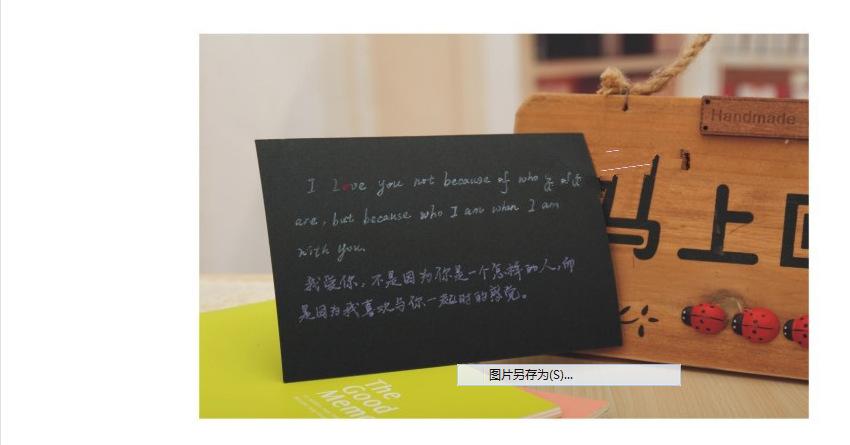 Handmade
I Love you not because of who
are, but because who I am when I am
with you.
我爱你，不是因为你是一个怎样的人，而
是因为我喜欢与你一起时的感觉。
马上
The
Good
图片另存为(S)...